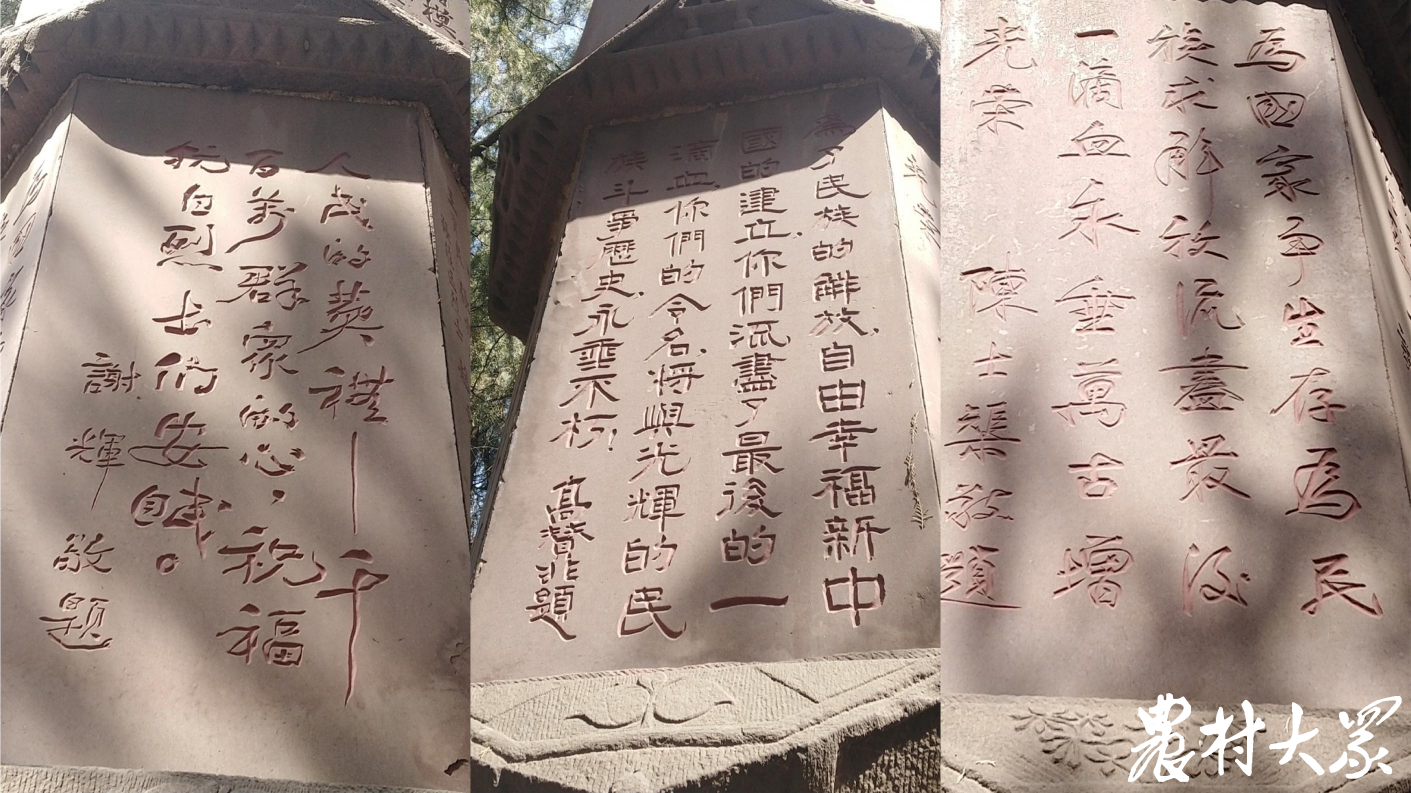 人民的英一千
百萬群眾的心，祝福
抗日烈士们安眠。
謝輝敬題
為了民族的解放，自由幸福新中
國的建立，你們流盡了最後的一
滴血，你們的令名，將與光輝的民
族斗爭歷史，永垂不朽，
高贊非題
为國家争生存为民
族求解放流盡最後
一滴血永垂萬古增
光荣 陳士榘敬題
農村大眾